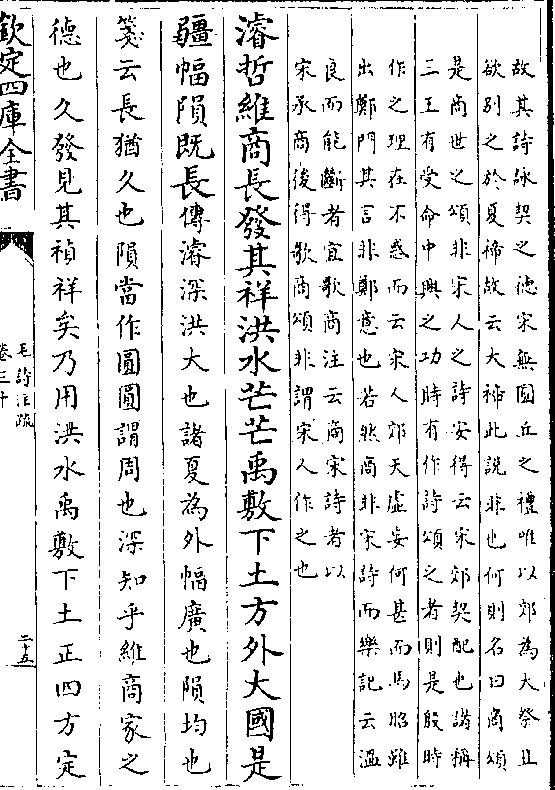 故其詩詠契之徳宋無圜丘之禮唯以郊為大祭且
欲別之於夏禘故云大禘此說非也何則名曰商頌
是商世之頌非宋人之詩安得云宋郊契配也謹稱
三王有受命中興之功時有作詩頌之者則是殷時
作之理在不惑而云宋人郊天虛妄何甚而馬昭雖
出鄭門其言非鄭意也若然商非宋詩而樂記云溫
良而能斷者宜歌商注云商宋詩者以
宋承商後得歌商頌非謂宋人作之也
濬哲維商長發其祥洪水芒芒禹敷下土方外大國是
疆幅隕既長傳濬深洪大也諸夏為外幅廣也隕均也
箋云長猶久也隕當作圓圓謂周也深知乎維商家之
德也久發見其禎祥矣乃用洪水禹敷下土正四方定
欽定四庫全書
毛詩注疏
卷三十
二十五